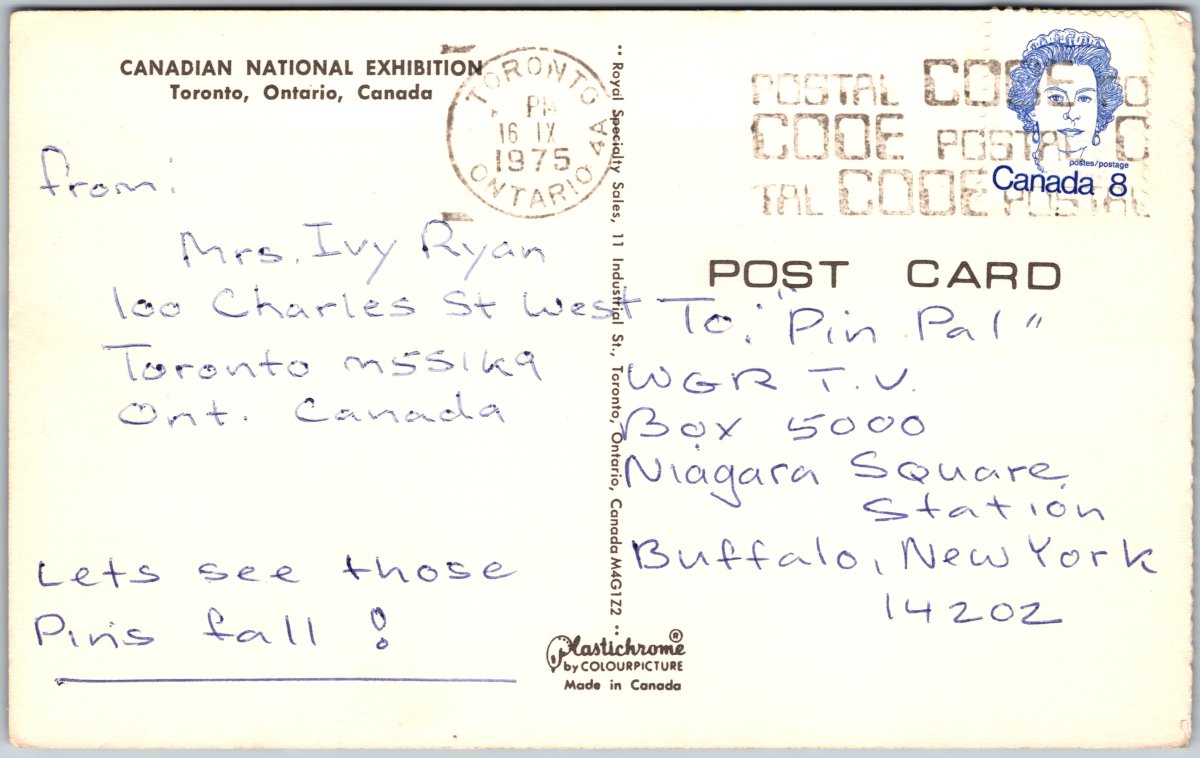 CANADIAN NATIONAL EXHIBITION
Toronto, Ontario, Canada
TORONTO
PM
16 IX
1975
ONTARIO 4A
POSTAL CODE CO
CODE POSTAL C
TAL CODE POSTAL
postes/postage
Canada 8
from:
Mrs. Ivy Ryan
100 Charles St West
Toronto M5S1K9
Ont. Canada
Lets see those
Pins fall!
Royal Specialty Sales, 11 Industrial St., Toronto, Ontario, Canada M4G1Z2
POST CARD
To: "Pin Pal"
WGR T.V.
Box 5000
Niagara Square
Station
Buffalo, New York
14202
Plastichrome®
by COLOURPICTURE
Made in Canada